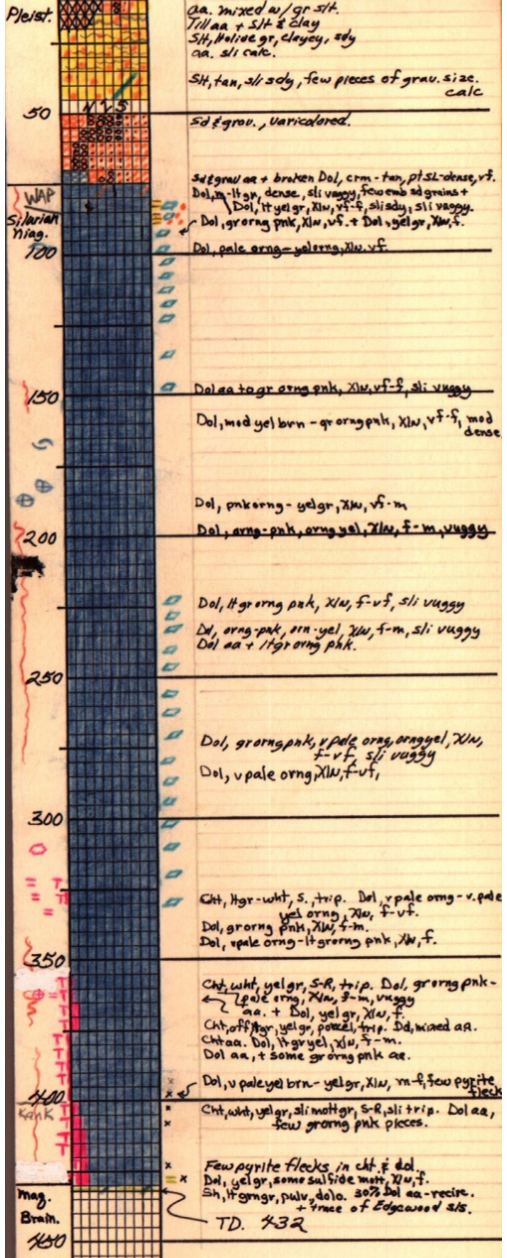 Pleist.
aa. mixed w/gr slt.
Till aa + Slt & clay
Slt, Holide gr, clayey, sdy
aa. sli calc.
Slt, tan, sli sdy, few pieces of grav. size.
calc
50
Sd & grav., varicolored.
Sd & grav aa + broken Dol, crm-tan, pt SL-dense, vf.
WAP
Dol, m-lt gr, dense, sli vuggy, few emb sd grains +
Dol, lt yel gr, XlN, vf-f, sli sdy, sli vuggy.
Silurian
Niag.
Dol, gr orng pnk, XlN, vf. + Dol, yel gr, XlN, f.
100
Dol, pale orng-yel orng, XlN, vf.
150
Dol aa to gr orng pnk, XlN, vf-f, sli vuggy
Dol, mod yel brn - gr orng pnk, XlN, vf-f, mod
dense
Dol, pnk orng-yel gr, XlN, vf-m
200
Dol, orng-pnk, orng yel, XlN, f-m, vuggy
Dol, lt gr orng pnk, XlN, f-vf, sli vuggy
Dol, orng-pnk, orn-yel, XlN, f-m, sli vuggy
Dol aa + lt gr orng pnk.
250
Dol, gr orng pnk, v pale orng, orng yel, XlN,
f-vf, sli vuggy
Dol, v pale orng, XlN, f-vf,
300
Cht, lt gr-wht, S., trip. Dol, v pale orng-v. pale
yel orng, XlN, f-vf.
Dol, gr orng pnk, XlN, f-m.
Dol, v pale orng-lt gr orng pnk, XlN, f.
350
Cht, wht, yel gr, S-R, trip. Dol, gr orng pnk-
pale orng, XlN, f-m, vuggy
aa. + Dol, yel gr, XlN, f.
Cht, off lt gr, yel gr, porcel, trip. Dol, mixed aa.
Cht aa. Dol, lt gr yel, XlN, f-m.
Dol aa, + some gr orng pnk aa.
Dol, v pale yel brn-yel gr, XlN, m-f, few pyrite
fleck
400
KanK
Cht, wht, yel gr, sli mott gr, S-R, sli trip. Dol aa,
few gr orng pnk pieces.
Few pyrite flecks in cht & dol.
Dol, yel gr, some sulfide mott, XlN, f.
Maq.
Brain.
Sh, lt grn gr, pulv, dolo. 30% Dol aa-recirc.
+ trace of Edgewood sls.
TD. 432
450